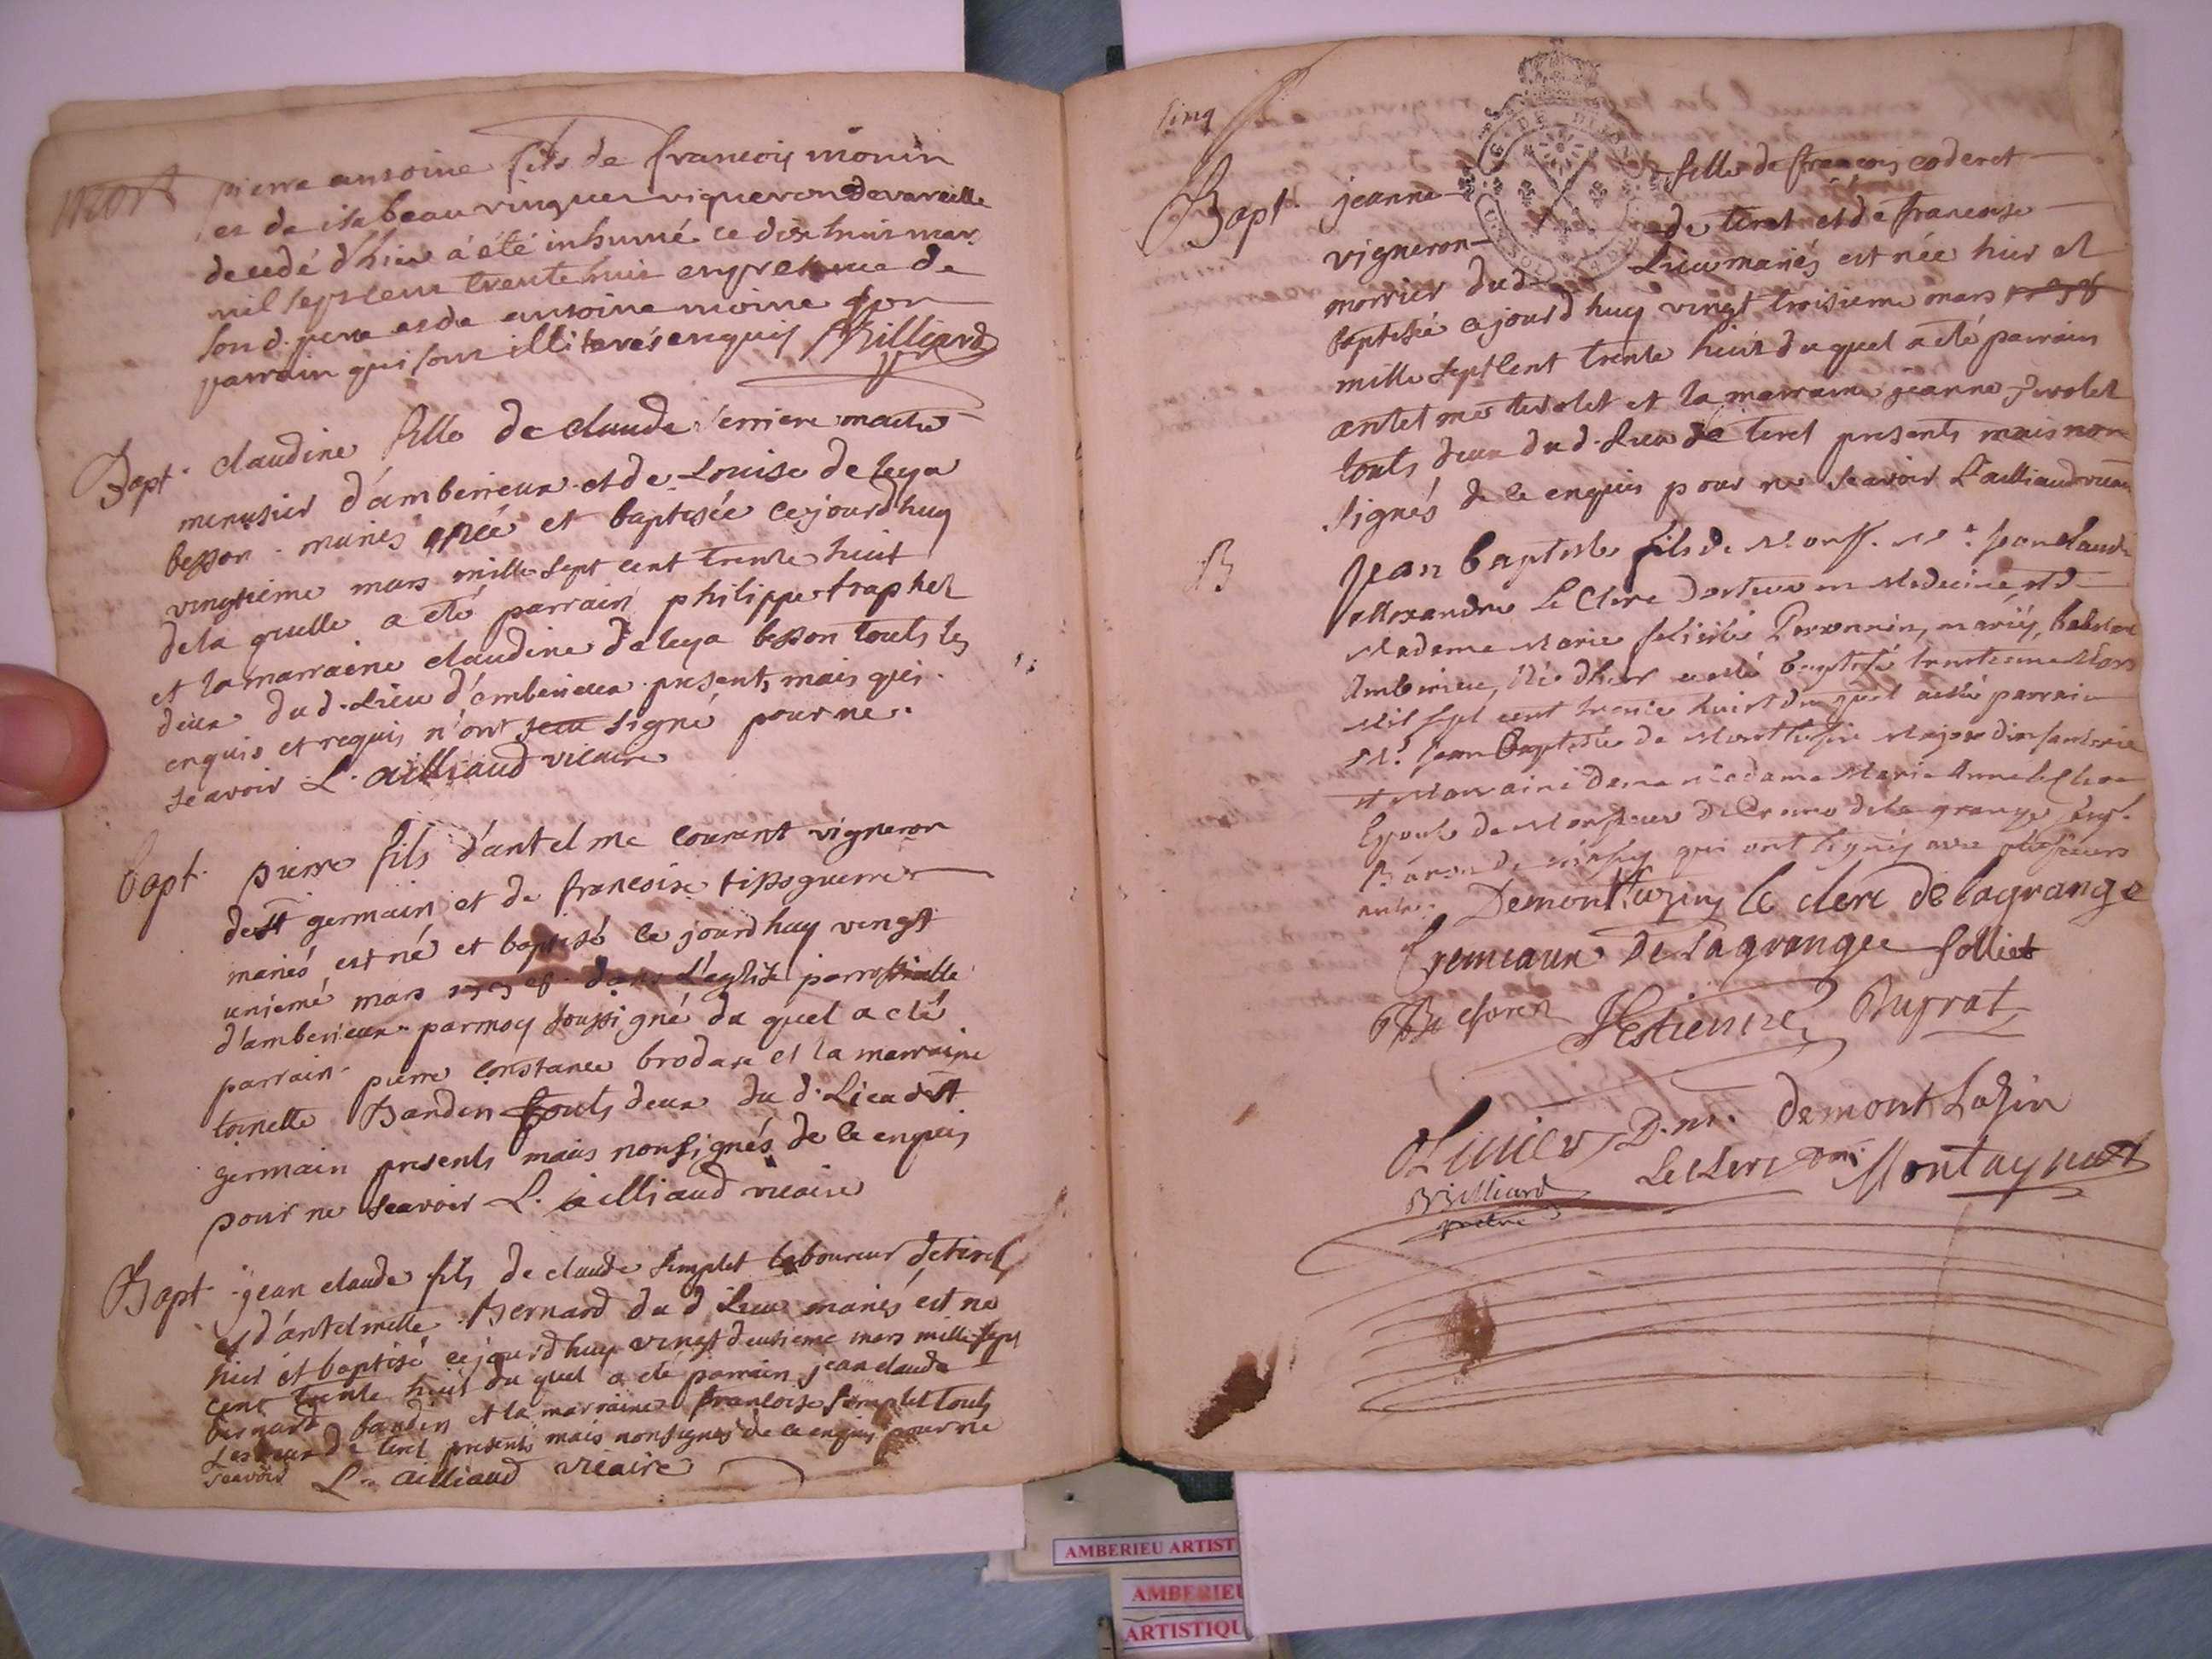 mort
pierre antoine fils de francois monin
et de isabeau vinguer vigneron de vareille
decedé d'hier a été inhumé ce dix huit mars
mil sept cent trente huit en presence de
son d. pere et de antoine moine son
parrain qui sont illiterés enquis Billiard
Bapt. claudine fille de claude serriere maitre
menusier d'amberieux et de Louise deleya
besson mariés née et baptisée ce jourd'huy
vingtieme mars mille sept cent trente huit
de la quelle a eté parrain philippe traphet
et la marraine claudine deleya besson touts les
deux du d. Lieu d'amberieux presents, mais qui
enquis et requis n'ont sceu signé pour ne
scavoir L. ailliaud vicaire
bapt. pierre fils d'antelme courant vigneron
de st germain et de francoise tissguerre
mariés est né et baptisé ce jourd huy vingt
unieme mars 1738 dans L'eglise parroissialle
d'amberieux par moy soussigné du quel a eté
parrain pierre constance brodare et la marraine
toinette Bandin touts deux du d. Lieu de st
germain presents mais non signés de ce enquis
pour ne scavoir L. ailliaud vicaire
Bapt. jean claude fils de claude simplet laboureur de tiret
et d'antelmette Bernard du d Lieu mariés est né
hier et baptisé ce jourd huy vingt deusieme mars mille sept
cent trente huit du quel a eté parrain jean claude
bernard bandin et la marraine francoise simplet touts
Les deux de tiret presents mais non signés de ce enquis pour ne
scavoir L. ailliaud vicaire
cinq
Bapt. jeanne fille de françois coderet
vigneron de tiret et de francoise
morrier du d. Lieu mariés est née hier et
baptisée ce jourd huy vingt troisieme mars 1738
mille sept cent trente huit du quel a eté parrain
antelme tevolet et la marraine jeanne tevolet
touts deux du d. Lieu de tiret presents mais non
signés de ce enquis pour ne scavoir L ailliaud vicaire
B
Jean baptiste fils de Mr. jean claude
allexandre Le Clerc Docteur en Medecine et de
Madame Marie felicité Perronnin, mariés,
Amberieu, né d'hier a esté baptisé trentieme Mars
Mil sept cent trente huit du quel a esté parrain
Mr. Jean Baptiste de Montluzin Major d'infanterie
et Marraine Dame Madame Marie Anne le Clerc
Epouse de Monsieur de Cremeaux de la grange
Baron de qui ont signés avec plusieurs
autres Demontluzin le clerc de lagrange
Cremeaux De Lagrange folliet
JEstienne Buyrat
Livier D. m. demont Luzin
Billiard LeClerc D m. Montagnat
pretre
G. DE DIJON
AMBERIEU ARTIST
AMBERIEU
ARTISTIQU